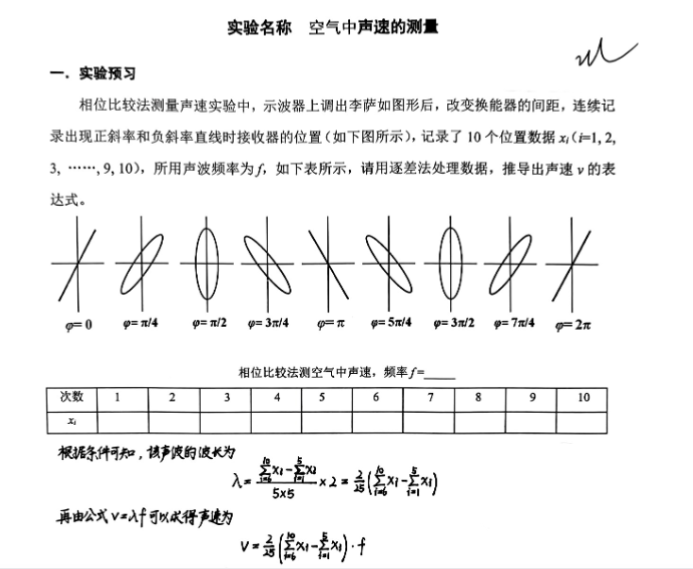 实验名称 空气中声速的测量
一．实验预习
相位比较法测量声速实验中，示波器上调出李萨如图形后，改变换能器的间距，连续记
录出现正斜率和负斜率直线时接收器的位置（如下图所示），记录了 10 个位置数据 xᵢ（i=1, 2,
3, ……, 9, 10），所用声波频率为 f，如下表所示，请用逐差法处理数据，推导出声速 v 的表
达式。
φ= 0 φ= π/4 φ= π/2 φ= 3π/4 φ= π φ= 5π/4 φ= 3π/2 φ= 7π/4 φ= 2π
相位比较法测空气中声速，频率 f=_____
次数 1 2 3 4 5 6 7 8 9 10
xᵢ
根据条件可知，该声波的波长为
λ = (∑_{i=6}^{10} xᵢ - ∑_{i=1}^{5} xᵢ) / (5×5) × 2 = 2/25 (∑_{i=6}^{10} xᵢ - ∑_{i=1}^{5} xᵢ)
再由公式 v=λf 可以求得声速为
v = 2/25 (∑_{i=6}^{10} xᵢ - ∑_{i=1}^{5} xᵢ) · f